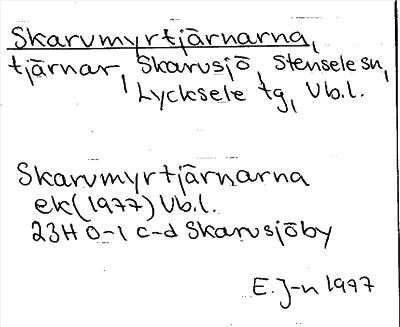 Skarvmyrtjärnarna,
tjärnar, Skarvsjö, Stensele sn,
Lycksele tg, Vb.l.
Skarvmyrtjärnarna
ek (1977) Vb.l.
23H 0-1 c-d Skarvsjöby
E. J-n 1997